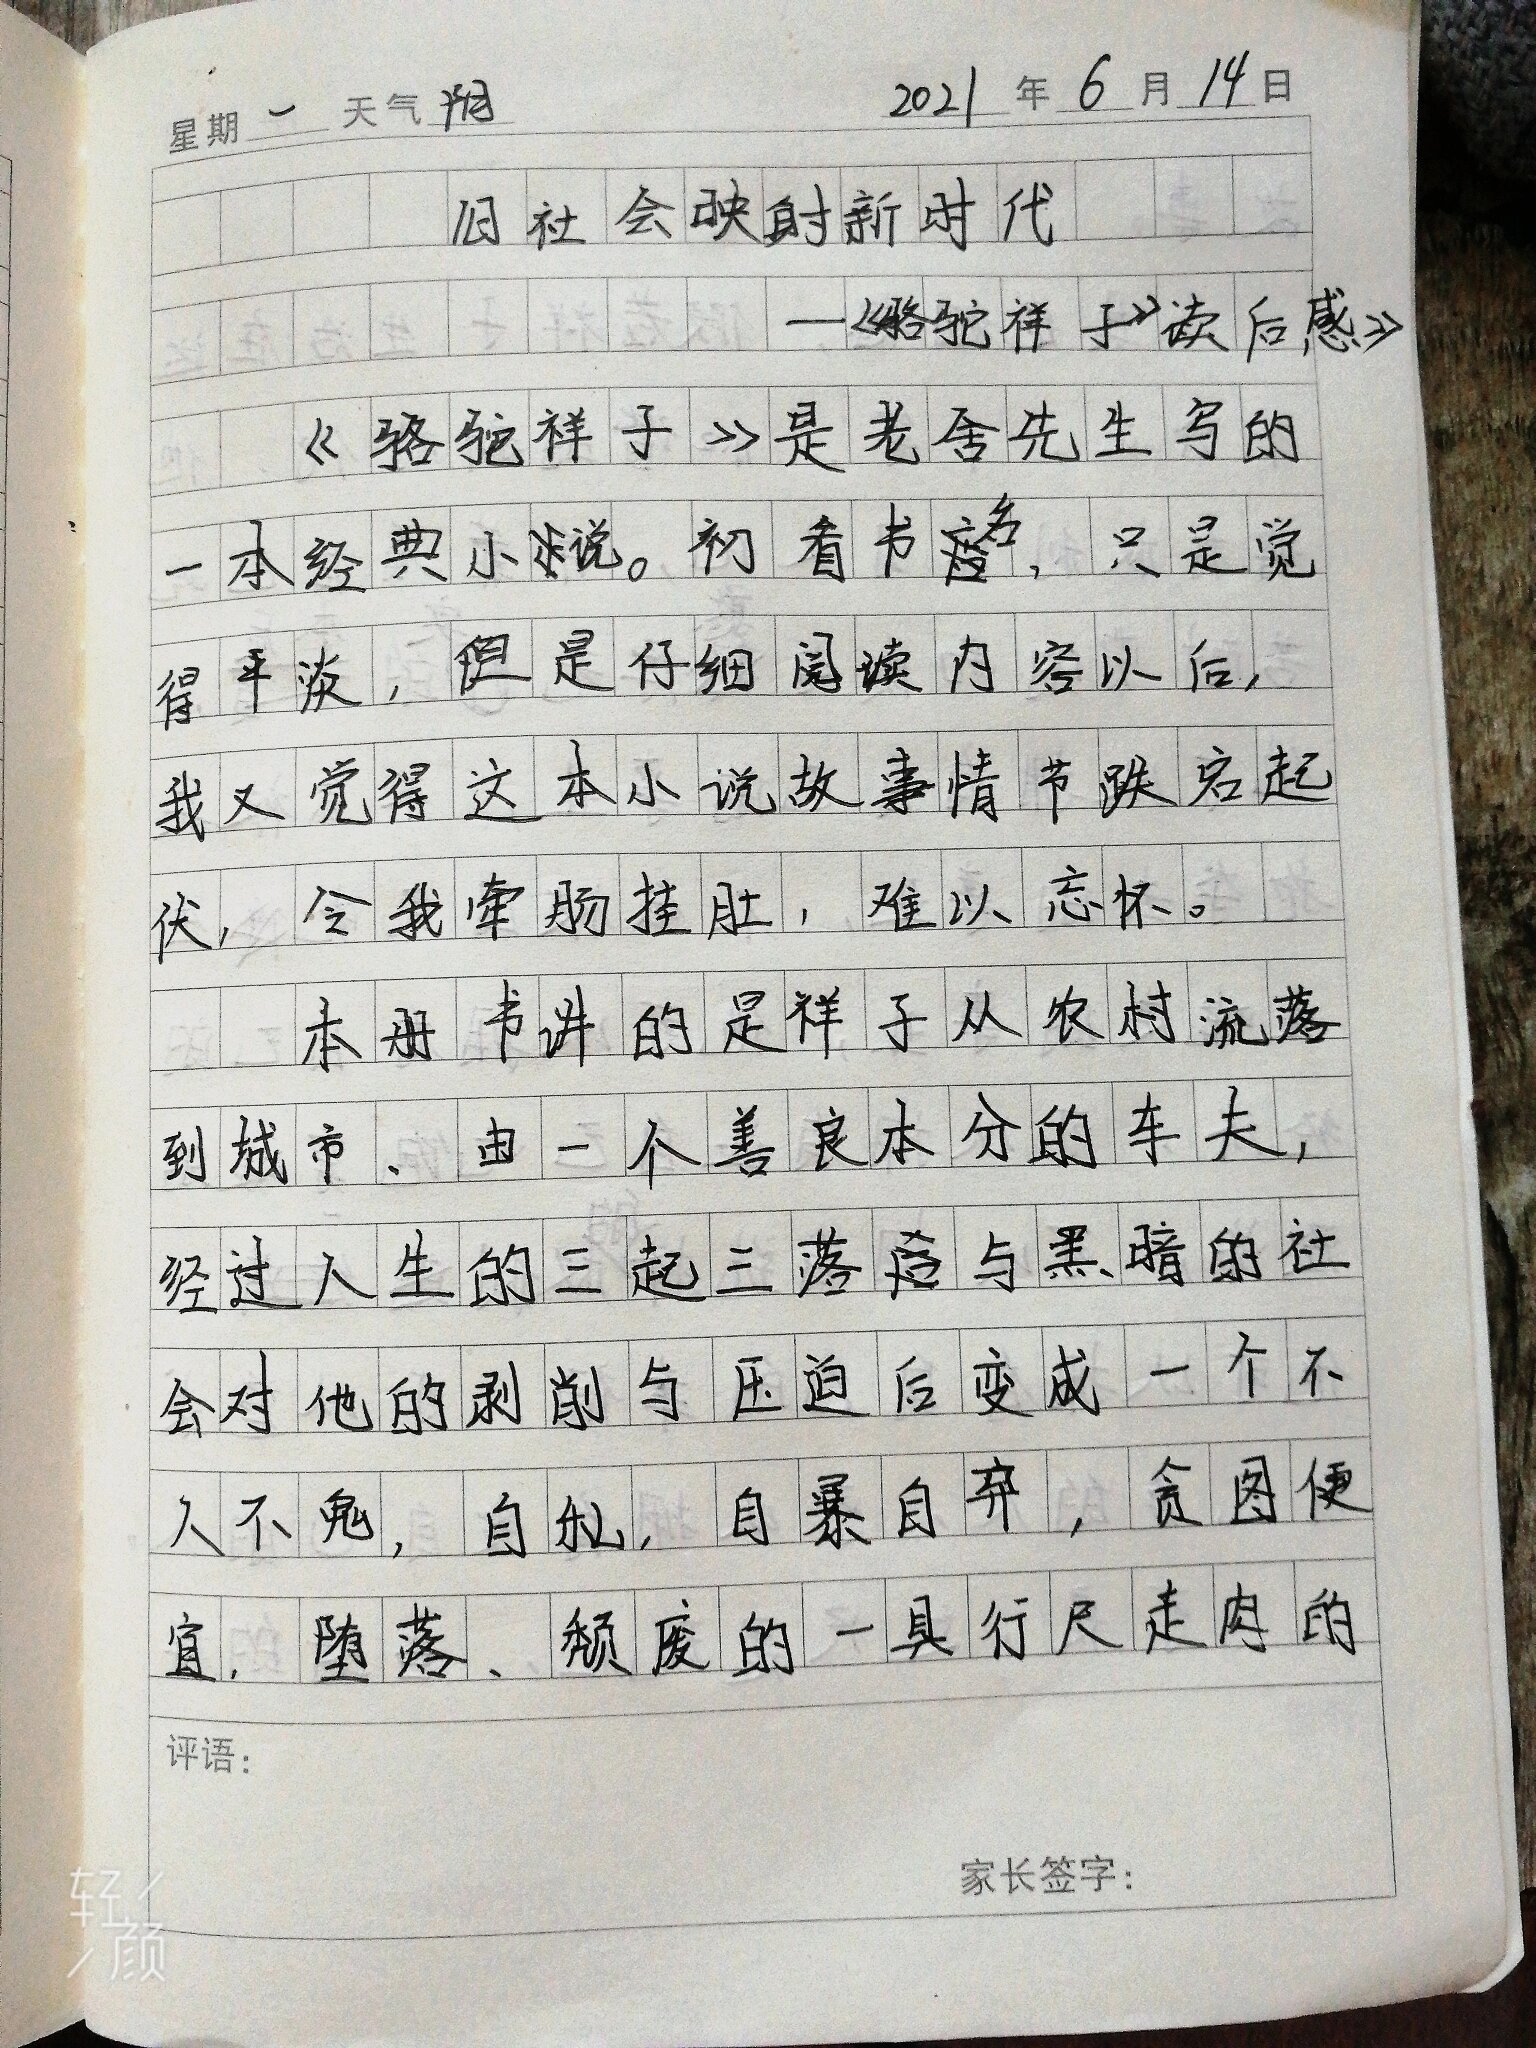 星期 一 天气 阴 2021 年 6 月 14 日
旧社会映射新时代
—《骆驼祥子》读后感》
《骆驼祥子》是老舍先生写的
一本经典小说。初看书名,只是觉
得平淡,但是仔细阅读内容以后,
我又觉得这本小说故事情节跌宕起
伏,令我牵肠挂肚,难以忘怀。
本册书讲的是祥子从农村流落
到城市、由一个善良本分的车夫,
经过人生的三起三落与黑暗的社
会对他的剥削与压迫后变成一个不
人不鬼,自私,自暴自弃,贪图便
宜,堕落、颓废的一具行尸走肉的
评语:
家长签字:
轻颜